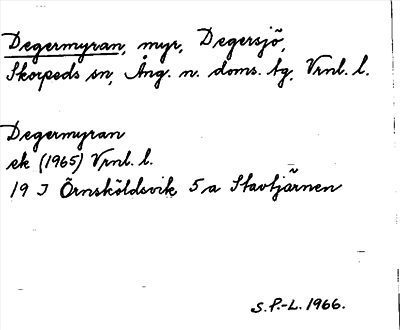 Degermyran, myr, Degersjö,
Skorpeds sn, Ång. n. doms. tg, Vrnl. l.
Degermyran
ek (1965) Vrnl. l.
19 J Örnsköldsvik 5 a Stavtjärnen
S.P.-L. 1966.